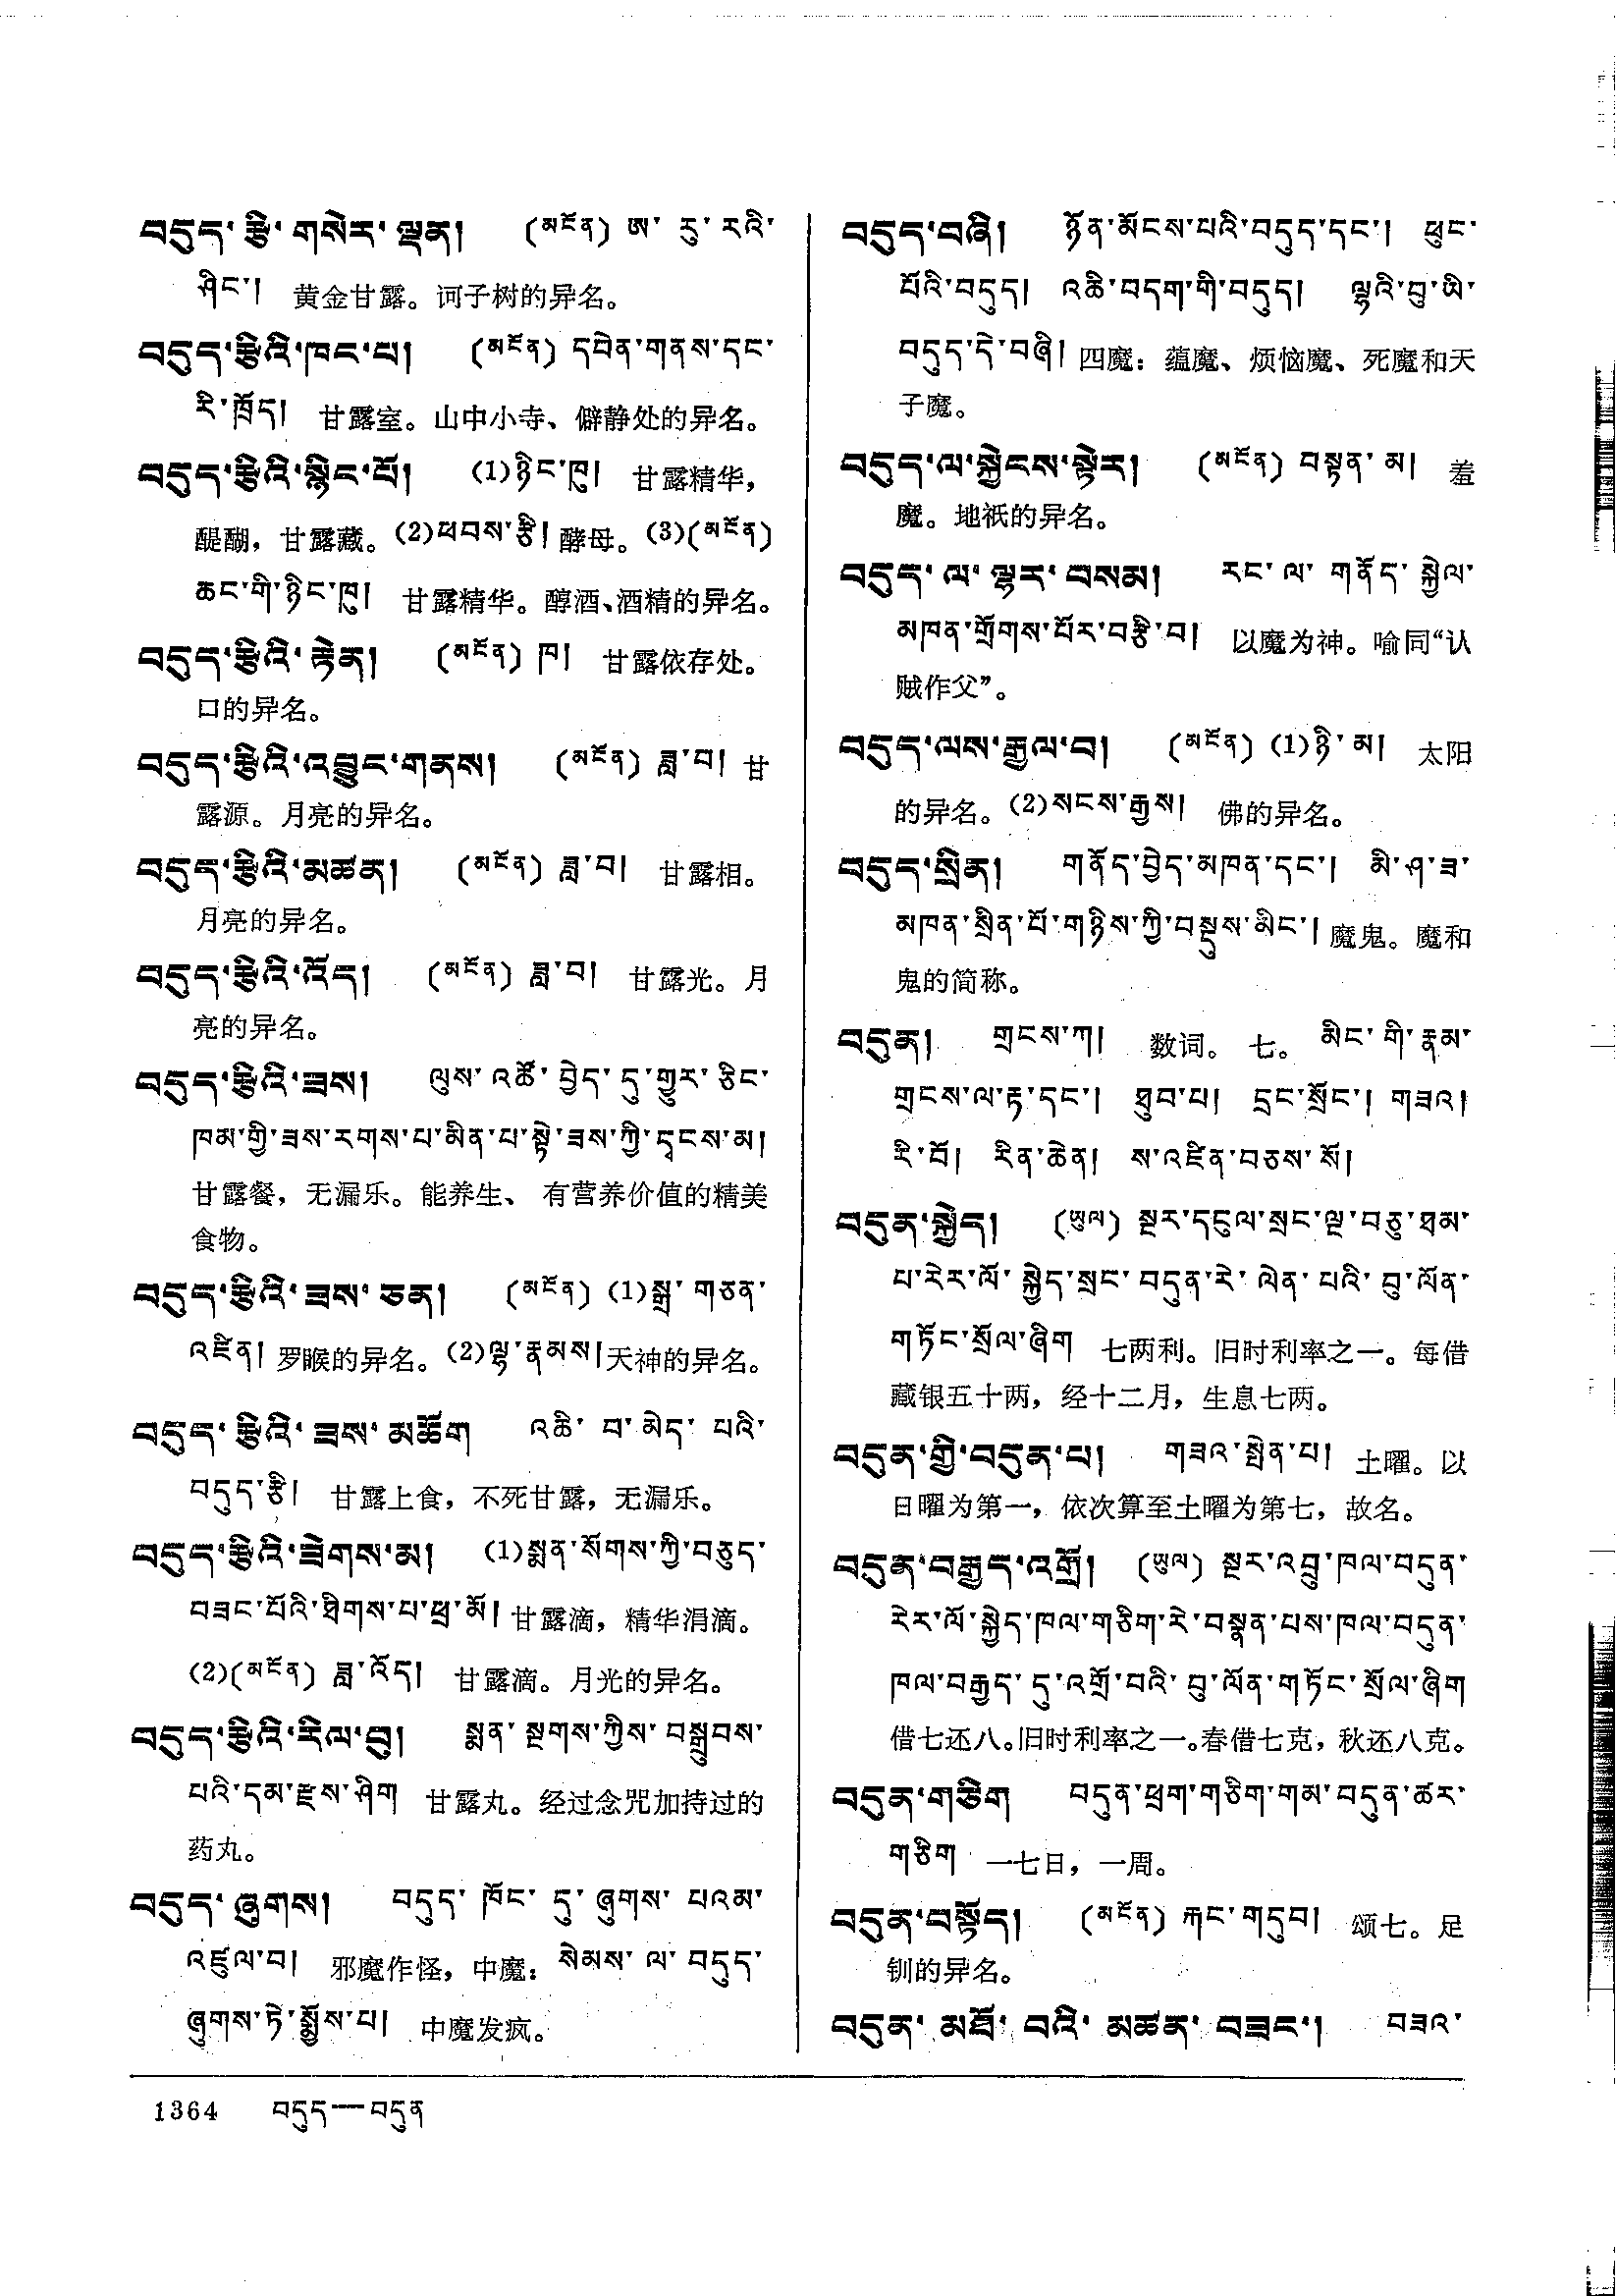 བདུད་རྩི་གསེར་ལྡན། (མངོན) ཨ་རུ་རའི་
ཤིང་། 黄金甘露。诃子树的异名。
བདུད་རྩིའི་ཁང་པ། (མངོན) དབེན་གནས་དང་
རི་ཁྲོད། 甘露室。山中小寺、僻静处的异名。
བདུད་རྩིའི་སྙིང་པོ། (1)ཉིང་ཁུ། 甘露精华，
醍醐，甘露藏。(2)ཕབས་རྩི། 酵母。(3)(མངོན)
ཆང་གི་ཉིང་ཁུ། 甘露精华。醇酒、酒精的异名。
བདུད་རྩིའི་རྟེན། (མངོན) ཁ། 甘露依存处。
口的异名。
བདུད་རྩིའི་འབྱུང་གནས། (མངོན) ཟླ་བ། 甘
露源。月亮的异名。
བདུད་རྩིའི་མཚན། (མངོན) ཟླ་བ། 甘露相。
月亮的异名。
བདུད་རྩིའི་འོད། (མངོན) ཟླ་བ། 甘露光。月
亮的异名。
བདུད་རྩིའི་ཟས། ལུས་འཚོ་བྱེད་དུ་གྱུར་ཅིང་
ཁམ་གྱི་ཟས་རགས་པ་མིན་པ་སྟེ་ཟས་ཀྱི་དྭངས་མ།
甘露餐，无漏乐。能养生、有营养价值的精美
食物。
བདུད་རྩིའི་ཟས་ཅན། (མངོན) (1)སྒྲ་གཅན་
འཛིན། 罗睺的异名。(2)ལྷ་རྣམས།天神的异名。
བདུད་རྩིའི་ཟས་མཆོག འཆི་བ་མེད་པའི་
བདུད་རྩི། 甘露上食，不死甘露，无漏乐。
བདུད་རྩིའི་ཟེགས་མ། (1)སྨན་སོགས་ཀྱི་བཅུད་
བཟང་པོའི་ཐིགས་པ་ཕྲ་མོ། 甘露滴，精华涓滴。
(2)(མངོན) ཟླ་འོད། 甘露滴。月光的异名。
བདུད་རྩིའི་རིལ་བུ། སྨན་སྔགས་ཀྱིས་བསྒྲུབས་
པའི་དམ་རྫས་ཤིག 甘露丸。经过念咒加持过的
药丸。
བདུད་ཞུགས། བདུད་ཁོང་དུ་ཞུགས་པའམ་
འཛུལ་བ། 邪魔作怪，中魔：སེམས་ལ་བདུད་
ཞུགས་ཏེ་སྨྱོས་པ། 中魔发疯。
བདུད་བཞི། ཉོན་མོངས་པའི་བདུད་དང་། ཕུང་
པོའི་བདུད། འཆི་བདག་གི་བདུད། ལྷའི་བུ་ཡི་
བདུད་དེ་བཞི། 四魔：蕴魔、烦恼魔、死魔和天
子魔。
བདུད་ལ་སྐྱེངས་སྟེར། (མངོན) བསྟན་མ། 羞
魔。地祇的异名。
བདུད་ལ་ལྷར་བསམ། རང་ལ་གནོད་སྐྱེལ་
མཁན་གྲོགས་པོར་བརྩི་བ། 以魔为神。喻同“认
贼作父”。
བདུད་ལས་རྒྱལ་བ། (མངོན) (1)ཉི་མ། 太阳
的异名。(2)སངས་རྒྱས། 佛的异名。
བདུད་སྲིན། གནོད་བྱེད་མཁན་དང་། མི་ཤ་ཟ་
མཁན་སྲིན་པོ་གཉིས་ཀྱི་བསྡུས་མིང་། 魔鬼。魔和
鬼的简称。
བདུན། གྲངས་ཀ། 数词。七。མིང་གི་རྣམ་
གྲངས་ལ་རྟ་དང་། ཐུབ་པ། དྲང་སྲོང་། གཟའ།
རི་བོ། རིན་ཆེན། ས་འཛིན་བཅས་སོ།
བདུན་སྐྱེད། (ཡུལ) སྔར་དངུལ་སྲང་ལྔ་བཅུ་ཐམ་
པ་རེར་ལོ་སྐྱེད་སྲང་བདུན་རེ་ལེན་པའི་བུ་ལོན་
གཏོང་སྲོལ་ཞིག 七两利。旧时利率之一。每借
藏银五十两，经十二月，生息七两。
བདུན་གྱི་བདུན་པ། གཟའ་སྤེན་པ། 土曜。以
日曜为第一，依次算至土曜为第七，故名。
བདུན་བརྒྱད་འགྲོ། (ཡུལ) སྔར་འབྲུ་ཁལ་བདུན་
རེར་ལོ་སྐྱེད་ཁལ་གཅིག་རེ་བསྣན་པས་ཁལ་བདུན་
ཁལ་བརྒྱད་དུ་འགྲོ་བའི་བུ་ལོན་གཏོང་སྲོལ་ཞིག
借七还八。旧时利率之一。春借七克，秋还八克。
བདུན་གཅིག བདུན་ཕྲག་གཅིག་གམ་བདུན་ཚར་
གཅིག 一七日，一周。
བདུན་བསྟོད། (མངོན) རྐང་གདུབ། 颂七。足
钏的异名。
བདུན་མཐོ་བའི་མཚན་བཟང་། བཟའ་
1364 བདུད—བདུན